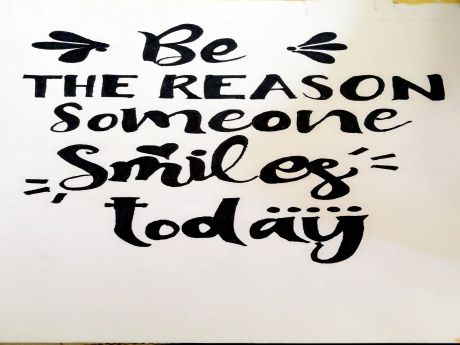 Be
THE REASON
someone
Smiles
today